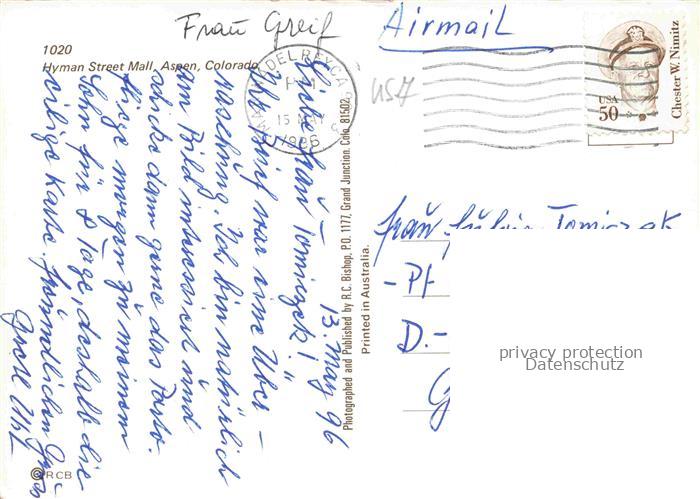 Frau Greif
Airmail
1020
Hyman Street Mall, Aspen, Colorado
MARINA DEL REY CA
PM
15 MAY
1996
USA
USA
50
Chester W. Nimitz
13. May 96
Liebe Frau Tomiczek!
Ihr Brief war eine Über-
raschung. Ich bin natürlich
am Bild interessiert und
schicke dann gerne das Porto.
Fliege morgen zu meinem
Sohn für 8 Tage, deshalb die
eilige Karte. Freundlichen Gruß
Photographed and Published by R.C. Bishop, P.O. 1177, Grand Junction, Colo. 81502
Printed in Australia.
Frau Tomiczek
- Pf
D.-
G
privacy protection
Datenschutz
© RCB